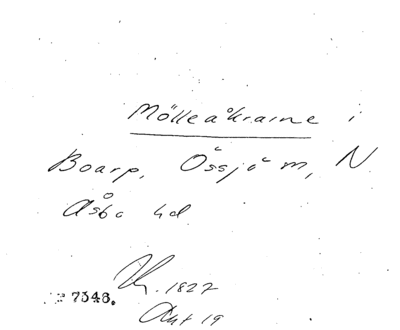 Mölleåkrarne i
Boarp, Össjö sn, N.
Åsbo hd
1827
Akt 19
7348.